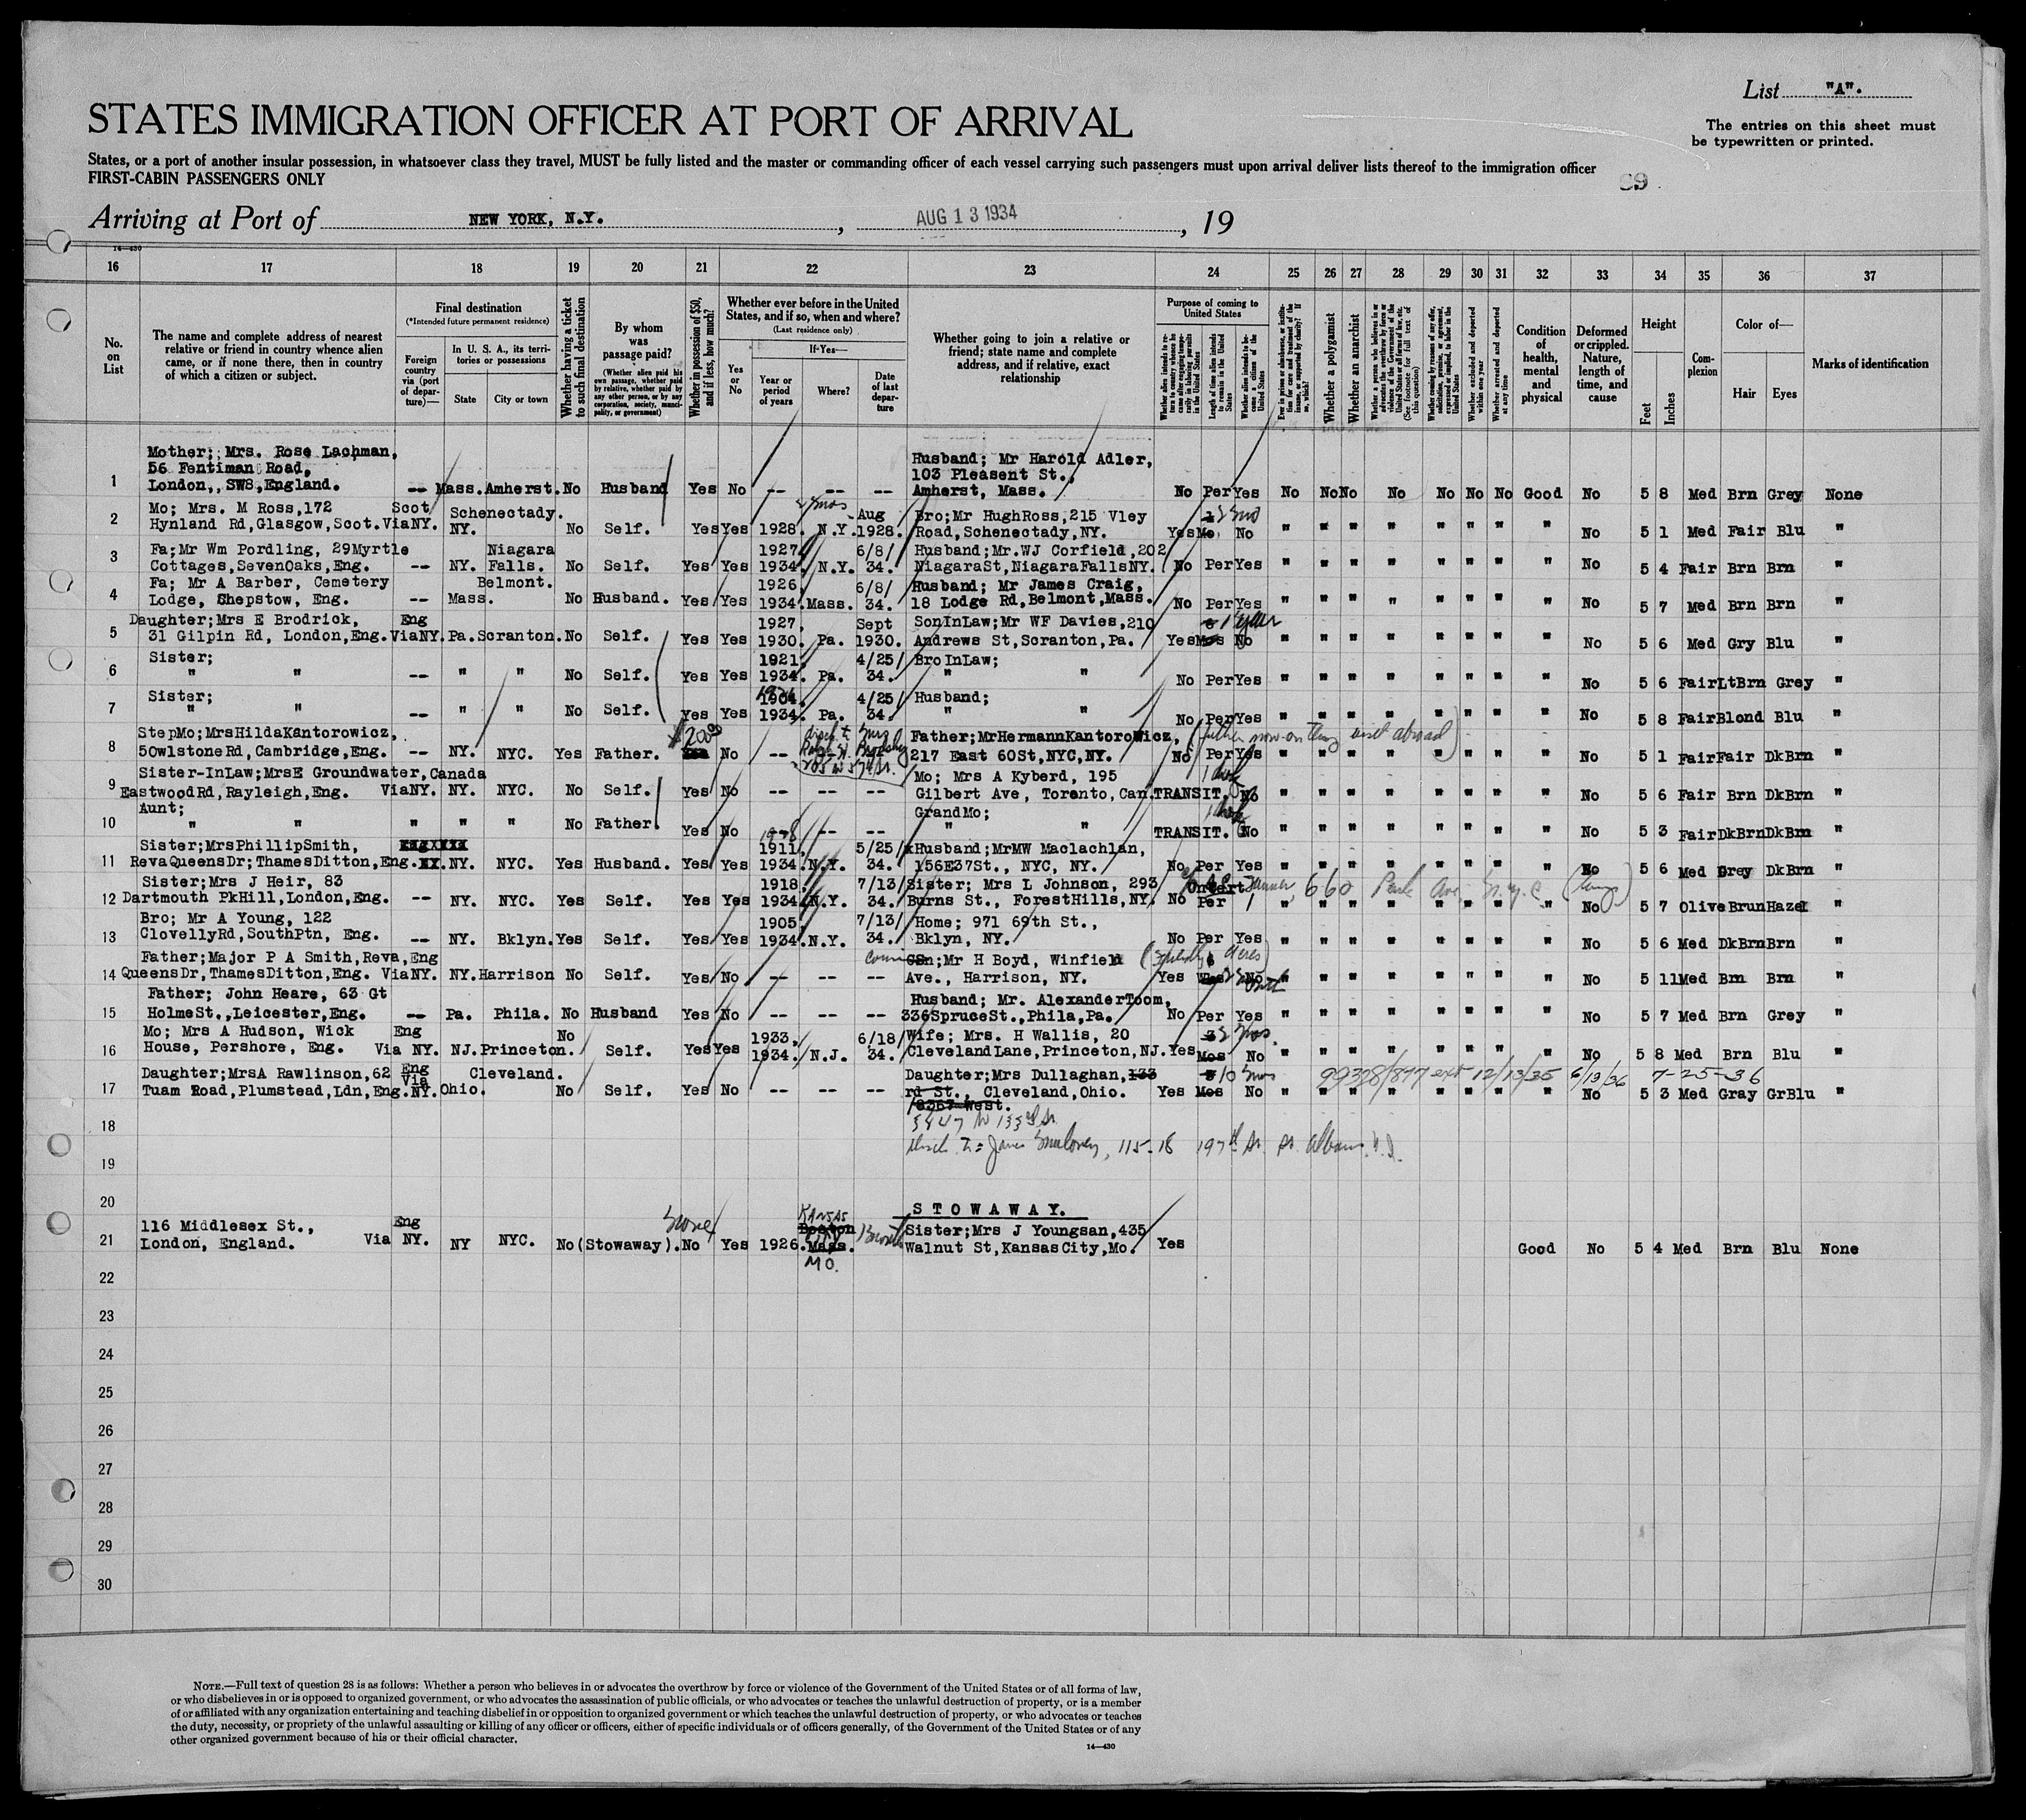 List "A".
STATES IMMIGRATION OFFICER AT PORT OF ARRIVAL
The entries on this sheet must
be typewritten or printed.
States, or a port of another insular possession, in whatsoever class they travel, MUST be fully listed and the master or commanding officer of each vessel carrying such passengers must upon arrival deliver lists thereof to the immigration officer
FIRST-CABIN PASSENGERS ONLY
Arriving at Port of NEW YORK, N.Y. , AUG 13 1934 , 19
14—430
16 17 18 19 20 21 22 23 24 25 26 27 28 29 30 31 32 33 34 35 36 37
No. on List
The name and complete address of nearest relative or friend in country whence alien came, or if none there, then in country of which a citizen or subject.
Final destination
(*Intended future permanent residence)
Foreign country via (port of departure)—
In U. S. A., its territories or possessions
State
City or town
Whether having a ticket to such final destination
By whom was passage paid?
(Whether alien paid his own passage, whether paid by relative, whether paid by any other person, or by any corporation, society, municipality, or government)
Whether in possession of $50, and if less, how much?
Whether ever before in the United States, and if so, when and where?
(Last residence only)
Yes or No
If Yes—
Year or period of years
Where?
Date of last departure
Whether going to join a relative or friend; state name and complete address, and if relative, exact relationship
Purpose of coming to United States
Length of time alien intends to remain in the United States
Whether alien intends to become a citizen of the United States
Whether a polygamist
Whether an anarchist
Whether excluded and deported within one year
Whether arrested and deported at any time
Condition of health, mental and physical
Deformed or crippled. Nature, length of time, and cause
Height
Feet
Inches
Complexion
Color of—
Hair
Eyes
Marks of identification
Mother; Mrs. Rose Lachman, Husband; Mr Harold Adler,
56 Fentiman Road, 103 Pleasent St.,
1 London,, SW8,England. -- Mass. Amherst. No Husband Yes No -- -- -- Amherst, Mass. No Per Yes No No No No No No No Good No 5 8 Med Brn Grey None
Mo; Mrs. M Ross,172 Scot Schenectady. Aug Bro;Mr HughRoss,215 Vley
2 Hynland Rd,Glasgow,Scot. ViaNY. NY. No Self. Yes Yes 1928. N.Y. 1928. Road,Schenectady,NY. Yes Mo. No " " " " " " " " No 5 1 Med Fair Blu "
Fa;Mr Wm Pordling, 29Myrtle Niagara 1927, 6/8/ Husband;Mr.WJ Corfield,202
3 Cottages,SevenOaks,Eng. -- NY. Falls. No Self. Yes Yes 1934. N.Y. 34. NiagaraSt,NiagaraFallsNY. No Per Yes " " " " " " " " No 5 4 Fair Brn Brn "
Fa; Mr A Barber, Cemetery Belmont. 1926, 6/8/ Husband; Mr James Craig,
4 Lodge, Shepstow, Eng. -- Mass. No Husband. Yes Yes 1934. Mass. 34. 18 Lodge Rd,Belmont,Mass. No Per Yes " " " " " " " " No 5 7 Med Brn Brn "
Daughter;Mrs E Brodrick, Eng 1927, Sept SonInLaw;Mr WF Davies,210 1 year
5 31 Gilpin Rd, London,Eng. ViaNY. Pa. Scranton. No Self. Yes Yes 1930. Pa. 1930. Andrews St,Scranton,Pa. Yes Mos No " " " " " " " " No 5 6 Med Gry Blu "
Sister; 1921, 4/25/ BroInLaw;
6 " " -- " " No Self. Yes Yes 1934. Pa. 34. " " No Per Yes " " " " " " " " No 5 6 Fair LtBrn Grey "
Sister; 4/25/ Husband;
7 " " -- " " No Self. Yes Yes 1934. Pa. 34. " " No Per Yes " " " " " " " " No 5 8 Fair Blond Blu "
StepMo;MrsHildaKantorowicz, $200 Father;MrHermannKantorowicz, (father now on visit abroad)
8 5OwlstoneRd,Cambridge,Eng. -- NY. NYC. Yes Father. No -- 217 East 60St,NYC,NY. No Per Yes " " " " " " " " No 5 1 Fair Fair DkBrn "
Sister-InLaw;MrsE Groundwater,Canada Mo; Mrs A Kyberd, 195
9 EastwoodRd,Rayleigh,Eng. ViaNY. NY. NYC. No Self. Yes No -- -- -- Gilbert Ave, Toronto,Can. TRANSIT. No " " " " " " " " No 5 6 Fair Brn DkBrn "
Aunt; GrandMo;
10 " " " " " No Father. Yes No -- -- -- " " TRANSIT. No " " " " " " " " No 5 3 Fair DkBrn DkBrn "
Sister;MrsPhillipSmith, 1911, 5/25/ Husband;MrMW Maclachlan,
11 RevaQueensDr;ThamesDitton,Eng. NY. NYC. Yes Husband. Yes Yes 1934. N.Y. 34. 156E37St., NYC, NY. No Per Yes " " " " " " " " No 5 6 Med Grey DkBrn "
Sister;Mrs J Heir, 83 1918, 7/13/ Sister; Mrs L Johnson, 293 660 Park Ave. N.Y.C.
12 Dartmouth PkHill,London,Eng. -- NY. NYC. Yes Self. Yes Yes 1934. N.Y. 34. Burns St., ForestHills,NY. No Per " " " " " " " " No 5 7 Olive Brun Hazel "
Bro; Mr A Young, 122 1905, 7/13/ Home; 971 69th St.,
13 ClovellyRd,SouthPtn, Eng. -- NY. Bklyn. Yes Self. Yes Yes 1934. N.Y. 34. Bklyn, NY. No Per Yes " " " " " " " " No 5 6 Med DkBrn Brn "
Father;Major P A Smith,Reva,Eng Mr H Boyd, Winfield
14 QueensDr,ThamesDitton,Eng. ViaNY. NY. Harrison No Self. Yes No -- -- -- Ave., Harrison, NY. Yes No " " " " " " " " No 5 11 Med Brn Brn "
Father; John Heare, 63 Gt Husband; Mr. AlexanderToom,
15 HolmeSt.,Leicester,Eng. -- Pa. Phila. No Husband Yes No -- -- -- 336SpruceSt.,Phila,Pa. No Per Yes " " " " " " " " No 5 7 Med Brn Grey "
Mo; Mrs A Hudson, Wick Eng No 1933, 6/18/ Wife; Mrs. H Wallis, 20
16 House, Pershore, Eng. Via NY. NJ. Princeton. Self. Yes Yes 1934. N.J. 34. ClevelandLane,Princeton,NJ. Yes Mos No " " " " " " " " No 5 8 Med Brn Blu "
Daughter;MrsA Rawlinson,62 Eng Via Cleveland. Daughter;Mrs Dullaghan,133 99328/877 ext 12/13/35 6/13/36 7-25-36
17 Tuam Road,Plumstead,Ldn,Eng. NY. Ohio. No Self. Yes No -- -- -- rd St., Cleveland,Ohio. Yes Mos No " " " " " " " " No 5 3 Med Gray GrBlu "
8367 West.
18
19
20 STOWAWAY.
116 Middlesex St., Eng KANSAS Boston Sister;Mrs J Youngsan,435
21 London, England. Via NY. NY NYC. No (Stowaway). No Yes 1926. Mass. Walnut St,KansasCity,Mo. Yes Good No 5 4 Med Brn Blu None
MO.
22
23
24
25
26
27
28
29
30
NOTE.—Full text of question 28 is as follows: Whether a person who believes in or advocates the overthrow by force or violence of the Government of the United States or of all forms of law,
or who disbelieves in or is opposed to organized government, or who advocates the assassination of public officials, or who advocates or teaches the unlawful destruction of property, or is a member
of or affiliated with any organization entertaining and teaching disbelief in or opposition to organized government or which teaches the unlawful destruction of property, or who advocates or teaches
the duty, necessity, or propriety of the unlawful assaulting or killing of any officer or officers, either of specific individuals or of officers generally, of the Government of the United States or of any
other organized government because of his or their official character.
14—430